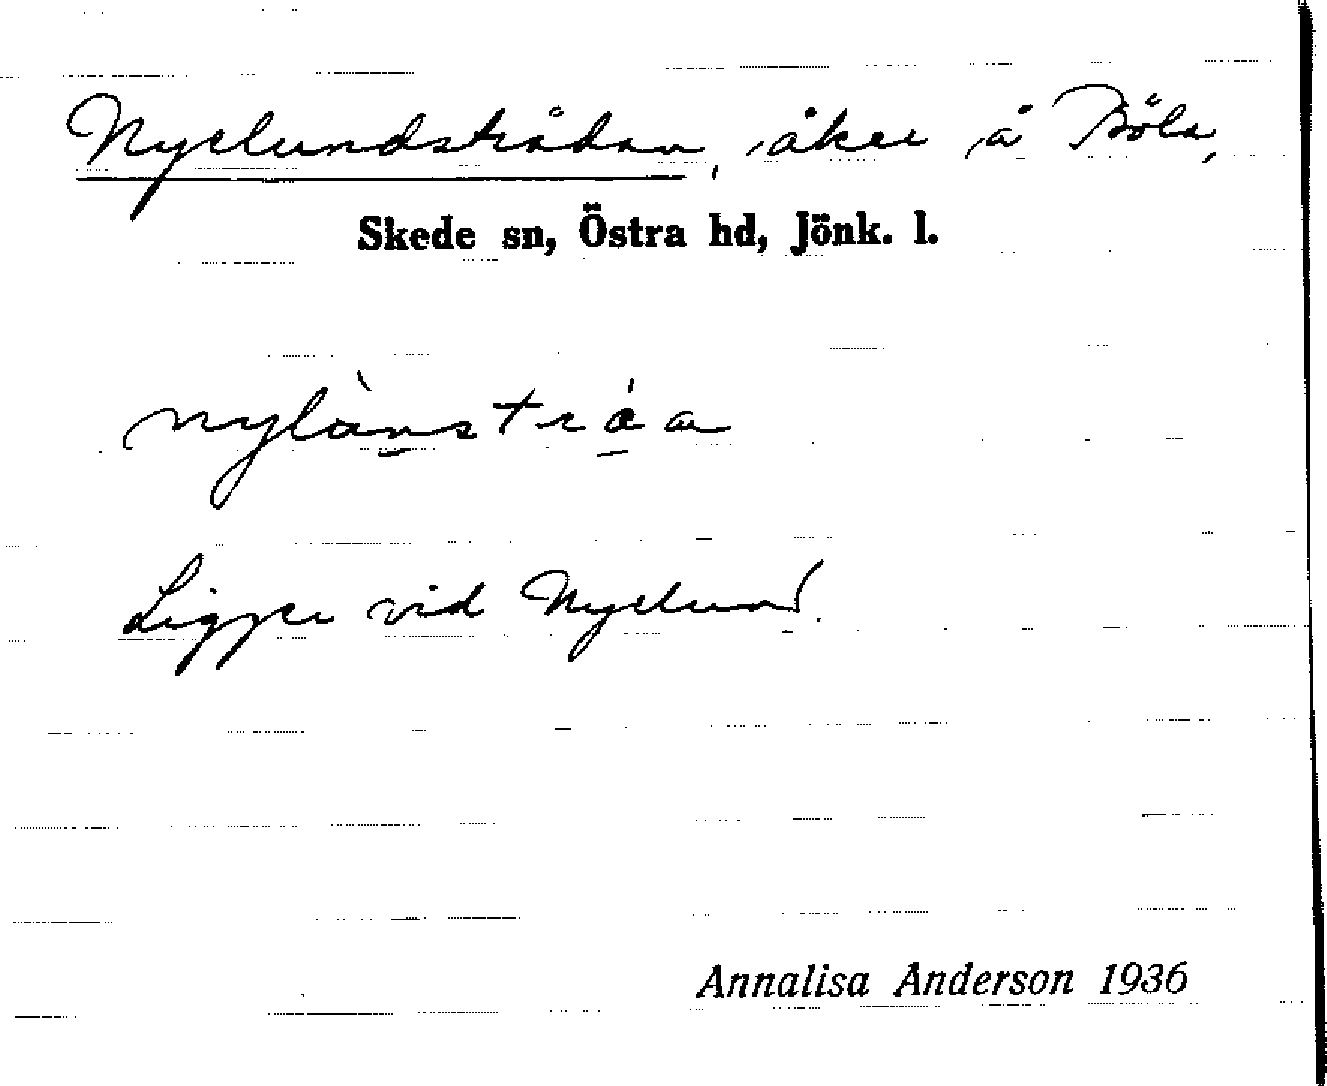 Nyelundsträdan, åker å Böla,
Skede sn, Östra hd, Jönk. l.
Ligger vid Nyelund.
Annalisa Anderson 1936